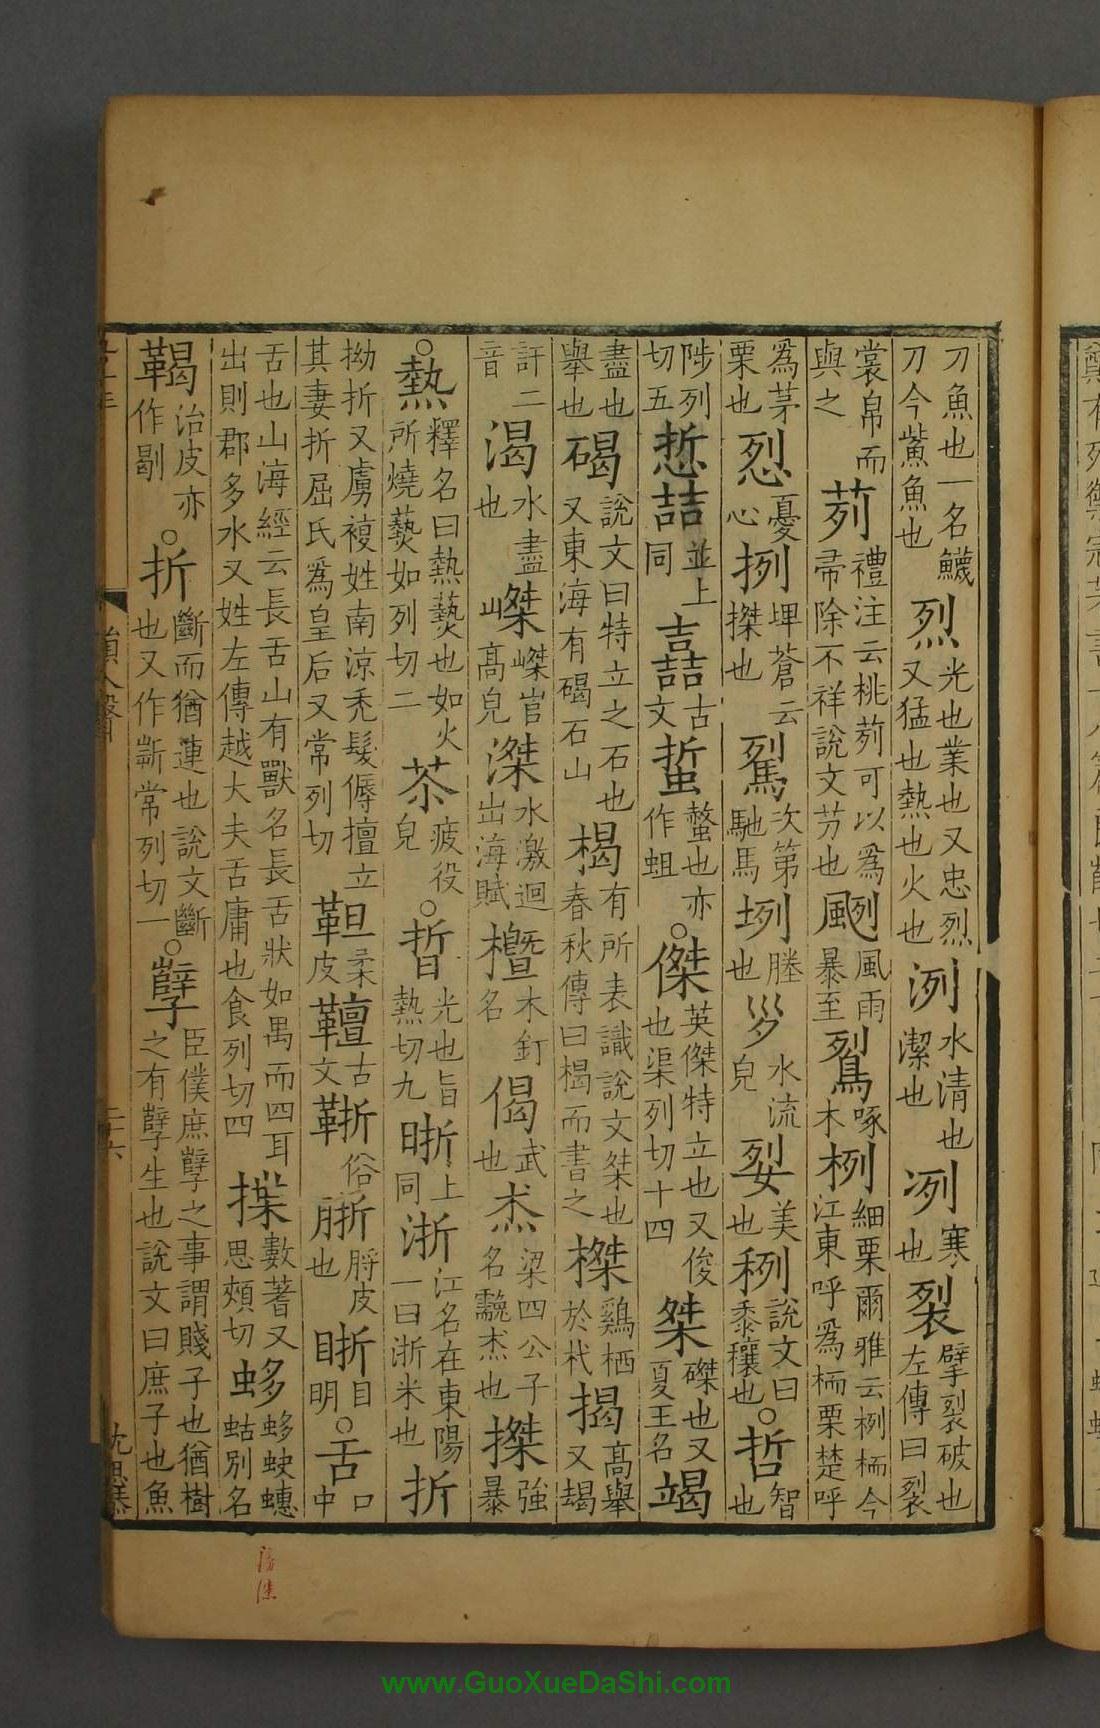 刀魚也一名鱴刀今鮆魚也烈光也業也又忠烈又猛也熱也火也洌水清也潔也冽寒也裂擘裂破也左傳曰裂
裳帛而與之茢禮注云桃茢可以為帚除不祥說文芀也颲風雨暴至鴷啄木栵細栗爾雅云栵栭今江東呼為栭栗楚呼
為茅栗也㤠憂心挒埤蒼云㨩也駕次第馳馬埒塍也水流皃㛤美也䅀說文曰黍穰也○哲智也
陟列切五悊喆並上同嚞古文蜇螫也亦作蛆○傑英傑特立也又俊也渠列切十四桀磔也又夏王名竭
盡也舉也碣說文曰特立之石也又東海有碣石山楬有所表識說文桀也春秋傳曰楬而書之榤鷄栖於杙揭高舉又竭
訐二音渴水盡也嵥嵥㟁高皃滐水激迴出海賦㯰木釘名偈武也杰梁四公子名䨲杰也㨩強暴
○熱釋名曰熱爇也如火所燒爇如列切二苶疲役皃○晢光也旨熱切九晣上同浙江名在東陽一曰浙米也折
拗折又虜複姓南涼禿髮傉檀立其妻折屈氏為皇后又常列切靼柔皮䩥古文䩢俗䏳脟皮也䀸目明○舌口中
舌也山海經云長舌山有獸名長舌狀如禺而四耳出則郡多水又姓左傳越大夫舌庸也食列切四揲數蓍又思頰切蛥蛥蚗蟪蛄別名
䩤治皮亦作剔○折斷而猶連也說文斷也又作㪿常列切一○孼臣僕庶孼之事謂賤子也猶樹之有孼生也說文曰庶子也魚
二十六
www.GuoXueDaShi.com